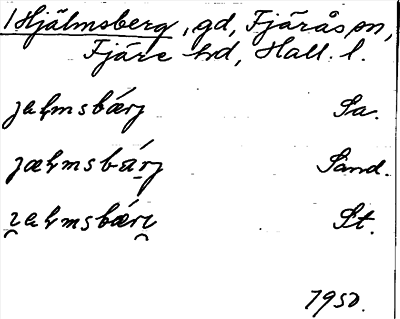 Hjälmsberg, gd, Fjärås sn,
Fjäre hd, Hall. l.
jaɫmsbárj Sa.
jæɫmsbá̱rj Sand.
i̯aɫmsbári̯ St.
1950.